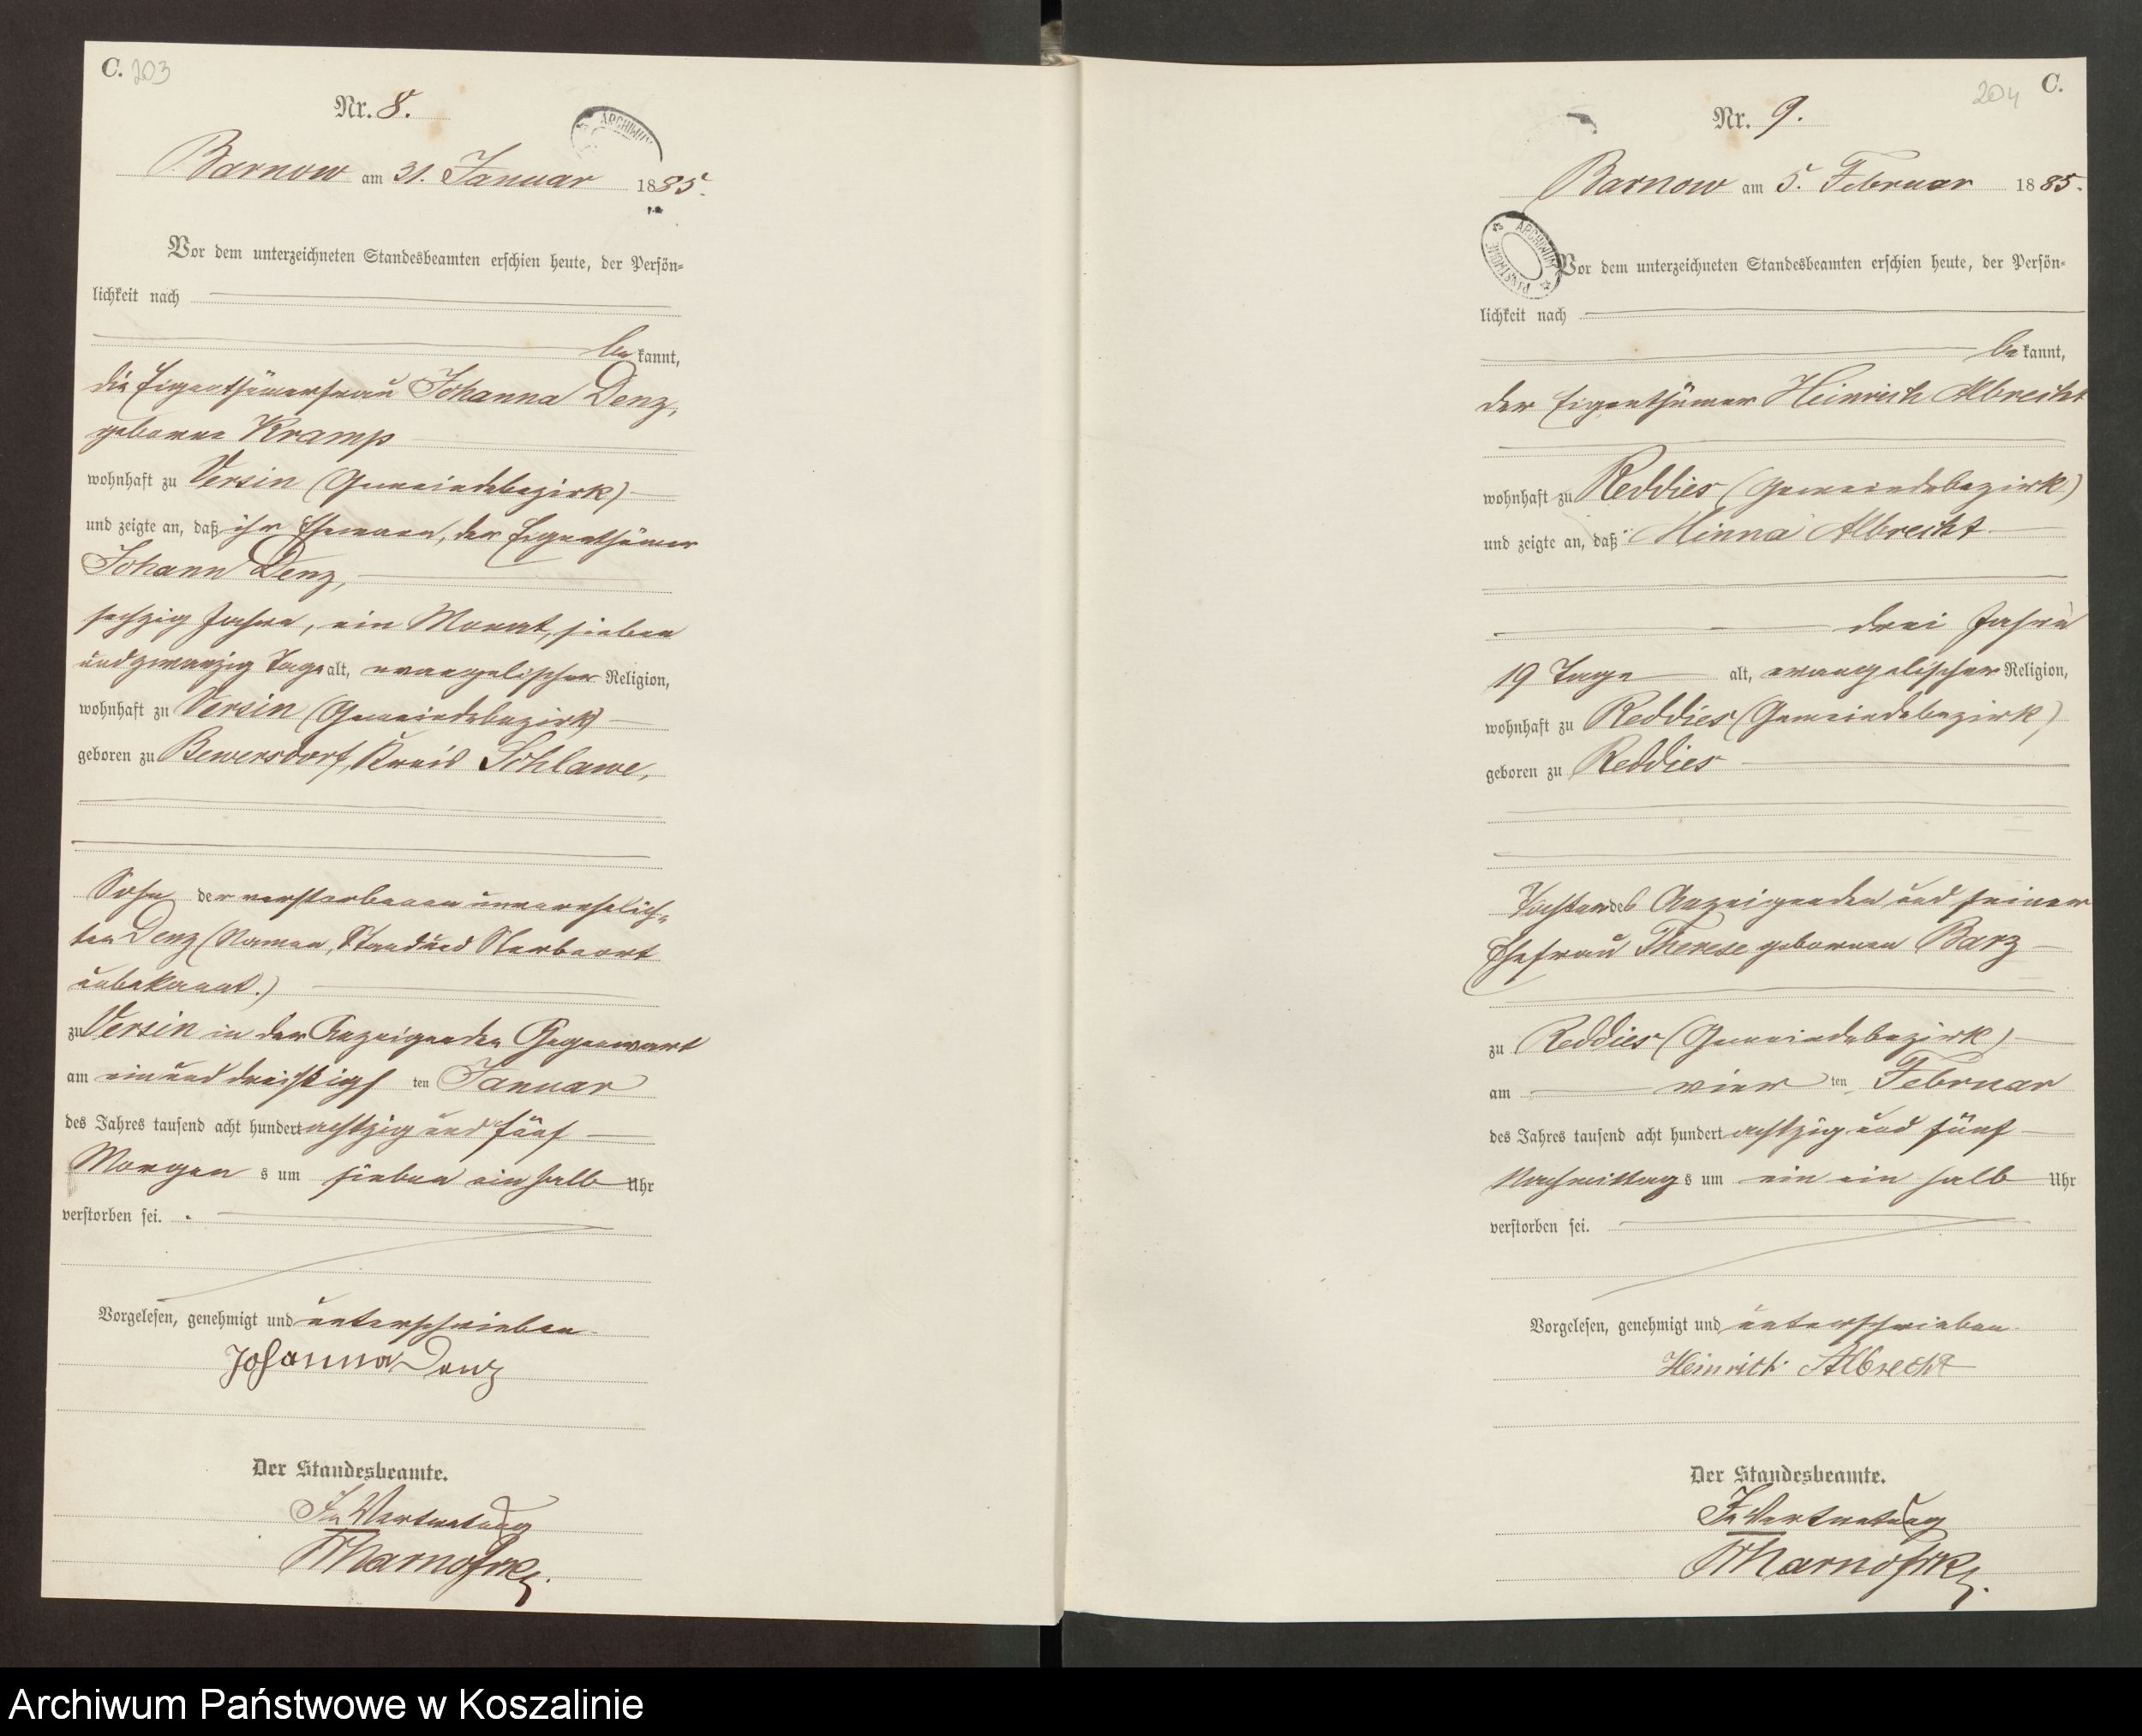 C. 203
Nr. 8.
ARCHIWUM
Barnow am 31. Januar 1885.
Vor dem unterzeichneten Standesbeamten erschien heute, der Persön-
lichkeit nach
bekannt,
die Eigenthümerfrau Johanna Denz,
geborene Kramp
wohnhaft zu Versin (Gemeindebezirk)
und zeigte an, daß ihr Ehemann, der Eigenthümer
Johann Denz,
sechzig Jahre, ein Monat, sieben
und zwanzig Tage alt, evangelischer Religion,
wohnhaft zu Versin (Gemeindebezirk)
geboren zu Bewersdorf, Kreis Schlawe,
Sohn der verstorbenen unverehelich-
ten Denz (Namen, Stand und Sterbeort
unbekannt.)
zu Versin in der Anzeigenden Gegenwart
am ein und dreißigs ten Januar
des Jahres tausend acht hundert achtzig und fünf
Morgen s um sieben ein halb Uhr
verstorben sei.
Vorgelesen, genehmigt und unterschrieben
Johanna Denz
Der Standesbeamte.
In Vertretung
204 C.
Nr. 9.
Barnow am 5. Februar 1885.
ARCHIWUM PAŃSTWOWE
Vor dem unterzeichneten Standesbeamten erschien heute, der Persön-
lichkeit nach
bekannt,
der Eigenthümer Heinrich Albrecht
wohnhaft zu Reddies (Gemeindebezirk)
und zeigte an, daß Minna Albrecht
drei Jahre
19 Tage alt, evangelischer Religion,
wohnhaft zu Reddies (Gemeindebezirk)
geboren zu Reddies
Tochter des Anzeigenden und seiner
Ehefrau Therese geborenen Barz
zu Reddies (Gemeindebezirk)
am vier ten Februar
des Jahres tausend acht hundert achtzig und fünf
Nachmittag s um ein ein halb Uhr
verstorben sei.
Vorgelesen, genehmigt und unterschrieben
Heinrich Albrecht
Der Standesbeamte.
In Vertretung
Archiwum Państwowe w Koszalinie